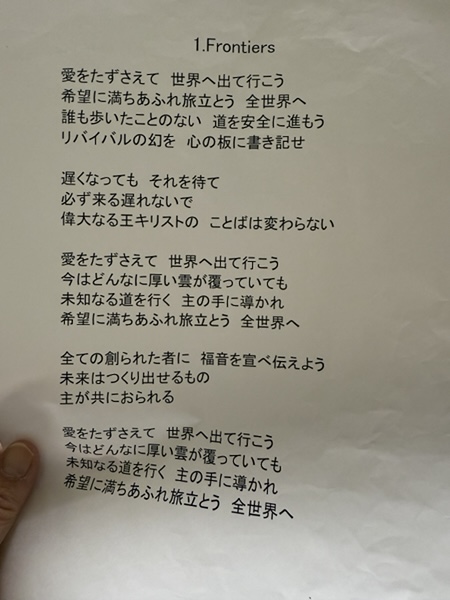 1.Frontiers
愛をたずさえて　世界へ出て行こう
希望に満ちあふれ旅立とう　全世界へ
誰も歩いたことのない　道を安全に進もう
リバイバルの幻を　心の板に書き記せ
遅くなっても　それを待て
必ず来る遅れないで
偉大なる王キリストの　ことばは変わらない
愛をたずさえて　世界へ出て行こう
今はどんなに厚い雲が覆っていても
未知なる道を行く　主の手に導かれ
希望に満ちあふれ旅立とう　全世界へ
全ての創られた者に　福音を宣べ伝えよう
未来はつくり出せるもの
主が共におられる
愛をたずさえて　世界へ出て行こう
今はどんなに厚い雲が覆っていても
未知なる道を行く　主の手に導かれ
希望に満ちあふれ旅立とう　全世界へ